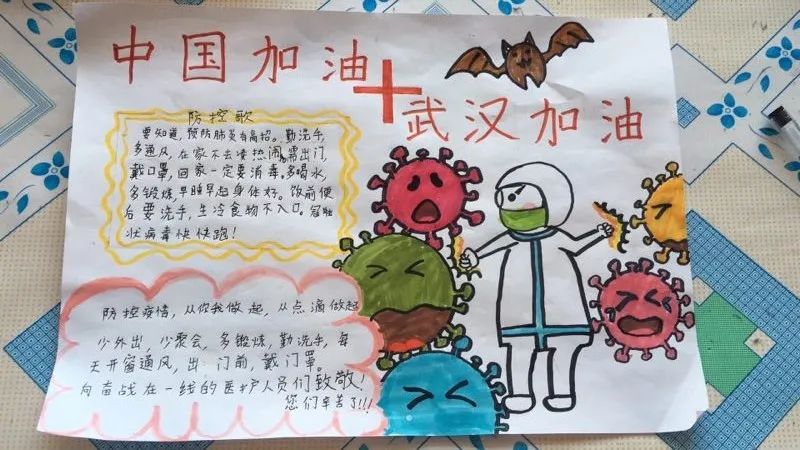 中国加油
武汉加油
防控歌
要知道,预防肺炎有高招。勤洗手,
多通风,在家不去凑热闹。需出门,
戴口罩,回家一定要消毒。多喝水,
多锻炼,早睡早起身体好。饭前便
后要洗手,生冷食物不入口。冠状
状病毒快快跑!
防控疫情,从你我做起,从点滴做起
少外出,少聚会,多锻炼,勤洗手,每
天开窗通风,出门前,戴门罩。
向奋战在一线的医护人员们致敬!
您们辛苦了!!!